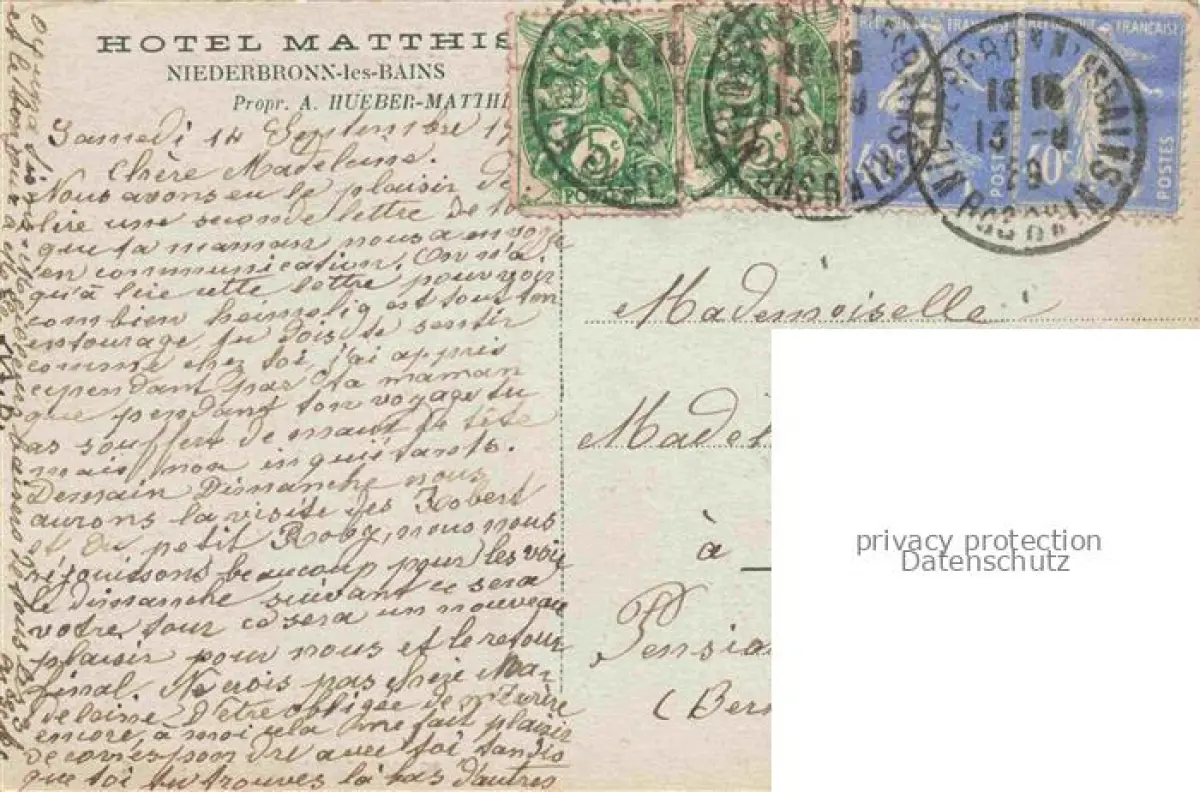 HOTEL MATTHIS
NIEDERBRONN-les-BAINS
Propr. A. HUEBER-MATTHI
Samedi 14 Septembre 19
Chère Madeleine.
Nous avons eu le plaisir de
lire une seconde lettre de to
que ta maman nous a envoyé
en communication. On n'a
qu'à lire cette lettre pour voir
combien heimelig est tout ton
entourage tu dois te sentir
comme chez toi, j'ai appris
cependant par ta maman
que pendant ton voyage tu
as souffert de maux de tête
mais non inquiétants.
Demain Dimanche nous
aurons la visite des Robert
et du petit Roby, nous nous
réjouissons beaucoup pour les voir
le dimanche suivant ce sera
votre tour ce sera un nouveau
plaisir pour nous et le retour
final. Ne crois pas chère Ma-
deleine d'être obligée de m'écrire
encore, à moi cela me fait plaisir
de correspondre avec toi tandis
que toi tu trouves là bas d'autres
RÉPUBLIQUE FRANÇAISE
RÉPUBLIQUE FRANÇAISE
5c
5c
40c
40c
POSTES
POSTES
POSTES
NIEDERBRONN LES BAINS
BAS RHIN
Mademoiselle
Made
à
Pensio
(Ber
privacy protection
Datenschutz